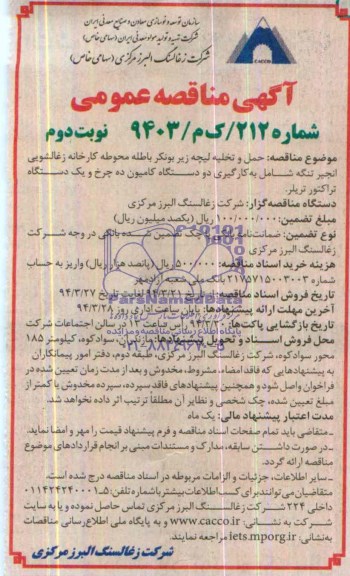 سازمان توسعه و نوسازی معادن و صنایع معدنی ایران
شرکت تهیه و تولید مواد معدنی ایران (سهامی خاص)
شرکت زغالسنگ البرز مرکزی (سهامی خاص)
CACCO
آگهی مناقصه عمومی
شماره ۲۱۲/ک م/۹۴۰۳ نوبت دوم
موضوع مناقصه: حمل و تخلیه لیچه زیر بونکر باطله محوطه کارخانه زغالشویی
انجیر تنگه شامل به کارگیری دو دستگاه کامیون ده چرخ و یک دستگاه
تراکتور تریلر.
دستگاه مناقصه‌گزار: شرکت زغالسنگ البرز مرکزی
مبلغ تضمین: ۱۰۰/۰۰۰/۰۰۰ ریال (یکصد میلیون ریال)
نوع تضمین: ضمانت‌نامه چک تضمین شده بانکی در وجه شرکت
زغالسنگ البرز مرکزی
هزینه خرید اسناد مناقصه: ۵۰۰/۰۰۰ ریال (پانصد هزار ریال) واریز به حساب
شماره ۲۱۷۵۷۱۵۰۰۳۰۰۳ بانک ملی شعبه
تاریخ فروش اسناد مناقصه: ۹۴/۳/۲۱ لغایت تاریخ ۹۴/۳/۲۷
آخرین مهلت ارائه پیشنهادها: پایان ساعت اداری روز ۹۴/۳/۲۸
تاریخ بازگشایی پاکت‌ها: رأس ساعت ۱۳ در سالن اجتماعات شرکت
محل فروش اسناد و تحویل پیشنهادها: مازندران، سوادکوه، کیلومتر ۱۸۵
محور سوادکوه، شرکت زغالسنگ البرز مرکزی، طبقه دوم، دفتر امور پیمانکاران
به پیشنهادهایی که فاقد امضاء، مشروط، مخدوش و بعد از مدت زمان تعیین شده در
فراخوان واصل شود و همچنین پیشنهادهای فاقد سپرده، سپرده مخدوش یا کمتر از
مبلغ تعیین شده، چک شخصی و نظایر آن مطلقاً ترتیب اثر داده نخواهد شد.
مدت اعتبار پیشنهاد مالی: یک ماه
ـ متقاضی باید تمام صفحات اسناد مناقصه و فرم پیشنهاد قیمت را مهر و امضا نماید.
ـ در صورت داشتن سابقه، مدارک و مستندات مبنی بر انجام قراردادهای موضوع
مناقصه ارائه گردد.
ـ سایر اطلاعات، جزئیات و الزامات مربوطه در اسناد مناقصه درج شده است.
متقاضیان می‌توانند برای کسب اطلاعات بیشتر با شماره تلفن: ۵ـ۰۱۱۴۲۴۲۴۰۰۰۱
داخلی ۲۲۴ شرکت زغالسنگ البرز مرکزی تماس حاصل نموده و یا به سایت
شرکت به نشانی: www.cacco.ir و به پایگاه ملی اطلاع‌رسانی مناقصات
به نشانی: iets.mporg.ir مراجعه نمایند.
شرکت زغالسنگ البرز مرکزی
ParsNamadData
پایگاه اطلاع رسانی مناقصه و مزایده